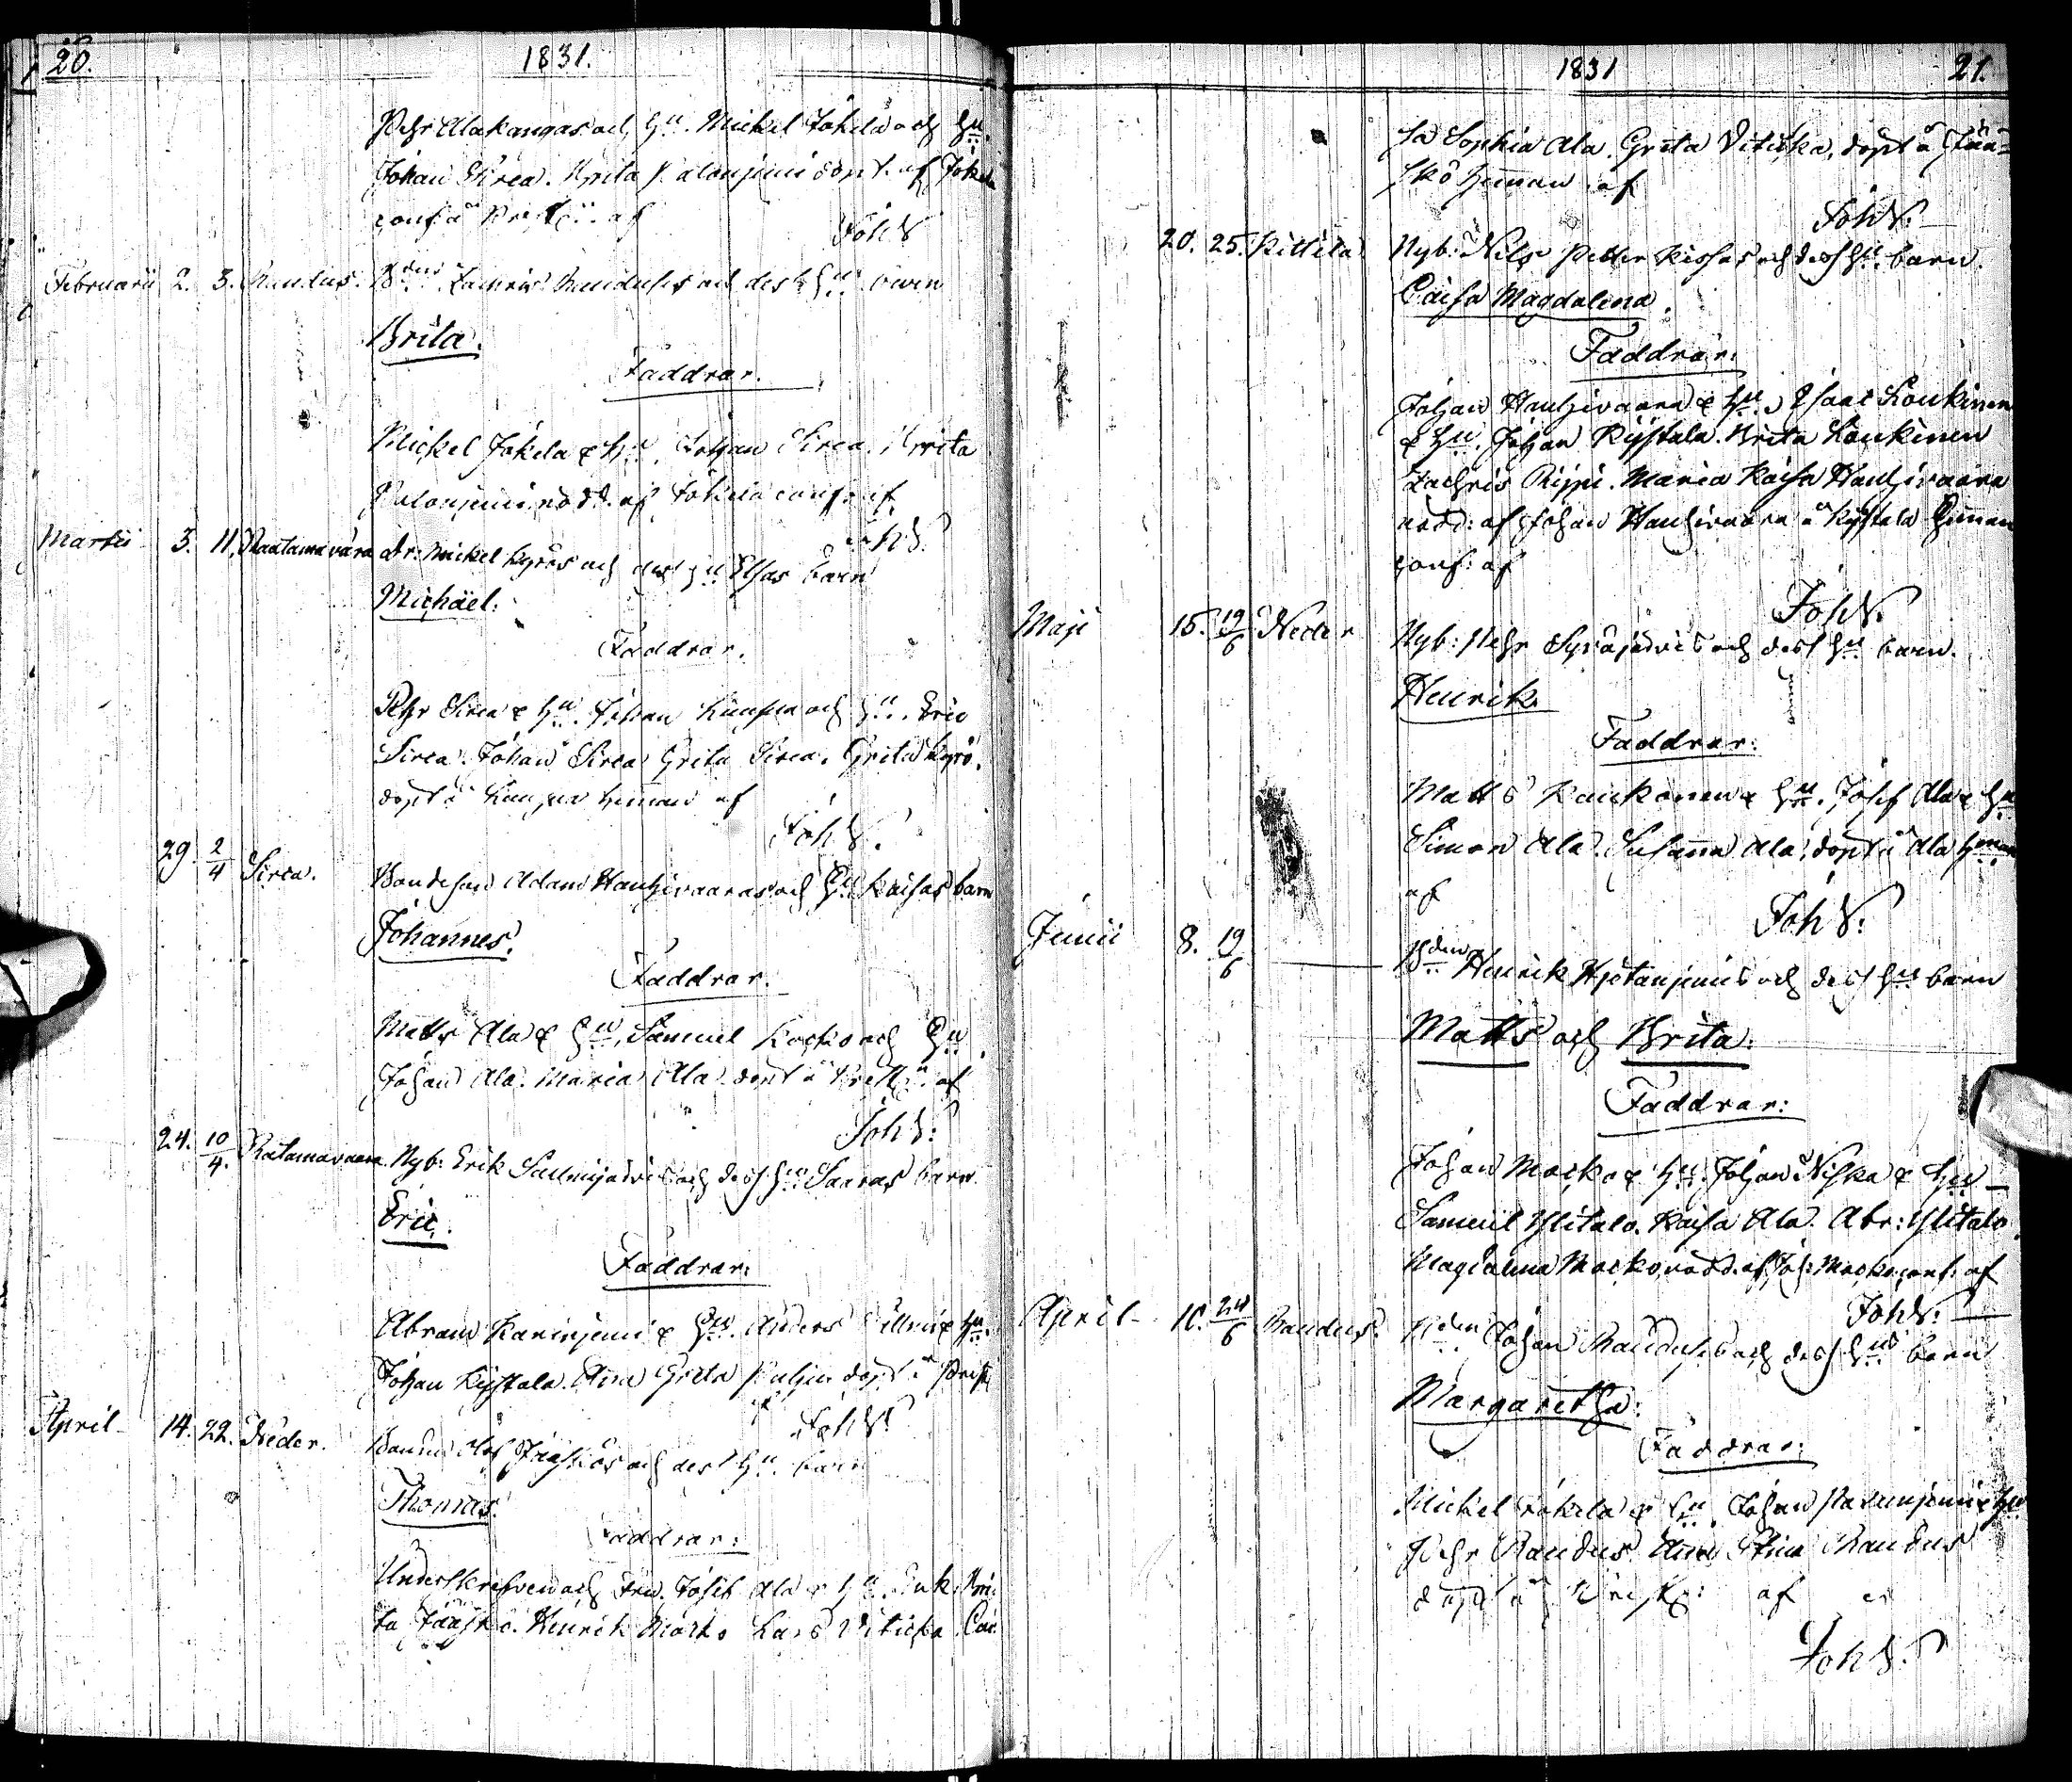 20.
1831.
Pehr Alakangas och Hu. Mickel Jokela och Hu.
Johan Sirca. Brita Palonjemi döpt af Jokela
conf: å Prest: af
JohW
Februarii 2. 3. Randus. Bden Zachris Raudus och dess Hus barn
Brita.
Faddrar.
Mickel Jokela & Hu, Johan Sirca. Brita
Palonjemi nödd: af Jokela conf: af
JohW
Martii 3. 11. Raatamavara Dr: Mickel Kyrös och dess Hu Elsas barn
Michäel.
Faddrar.
Pehr Sirca & Hu. Johan och Hu. Eric
Sirca. Johan Sirca Grita Sirca. Grita Kyrö.
döpt å hemman af
JohW.
29. 2/4 Sirca. Bondeson Adam Hanhivaaras och Hu Kaisas barn
Johannes.
Faddrar.
Matts Ala & Hu, Samuel och Hu
Johan Ala. Maria Ala. döpt å af
JohW:
24. 10/4. Ratamavaara Nyb: Erik Salmijärvis och dess Hu Saaras barn
Eric.
Faddrar:
Abram & Hu. Anders & Hu.
Johan Kystala. Ana Greta döpt å Prest
af JohW:
April 14. 22. Neder. Bonden Olof Jääskös och dess Hu. barn
Thomas.
Faddrar:
Underskrefven och Fru, Josef Ala & Hu. Enk: Bri-
ta Jääskö. Henrik Marko Lars Vitikka. Cai-
1831
21.
sa Sophia Ala. Greta Vitikka, döpt å Jää-
skö Hemman af
JohW:
20. 25. Kittilä Nyb: Nils Petter Kissas och dess Hus barn
Caisa Magdalena.
Faddrar:
Johan Hanhivaara & Hu, Isaac Koukinen
& Hu. Johan Kystala. Brita Koukinen
Zachris Rippi. Maria Kaisa Hanhivaara
nödd: af Johan Hanhivaara å Kystala Hemman
conf: af
JohW.
Maji 15. 19/6 Neder Nyb: Pehr Syväjärvis och dess Hu barn.
Henrik.
Faddrar:
Matts Kaukonen & Hu. Josef Ala & Hu
Simon Ala. Susanna Ala. döpt å Ala Hemman
af
JohW:
Junii 8. 19/6 — Bden Henrik Hjetanjemis och dess Hus barn
Matts och Brita.
Faddrar:
Johan Marko & Hu. Johan Niska & Hu
Samuel Ylitalo. Kaisa Ala. Abr: Ylitalo
Magdalena Marko, nödd. af Joh: Marko, conf: af
JohW:
April 16. 24/6 Raudus. Bden Johan Raudus och dess Hus barn
Margaretha:
Faddrar:
Mickel Jokela & Hu, Johan Palonjemi & Hu
Pehr Raudus Stina Raudus
döpt å Prest: af
JohW.